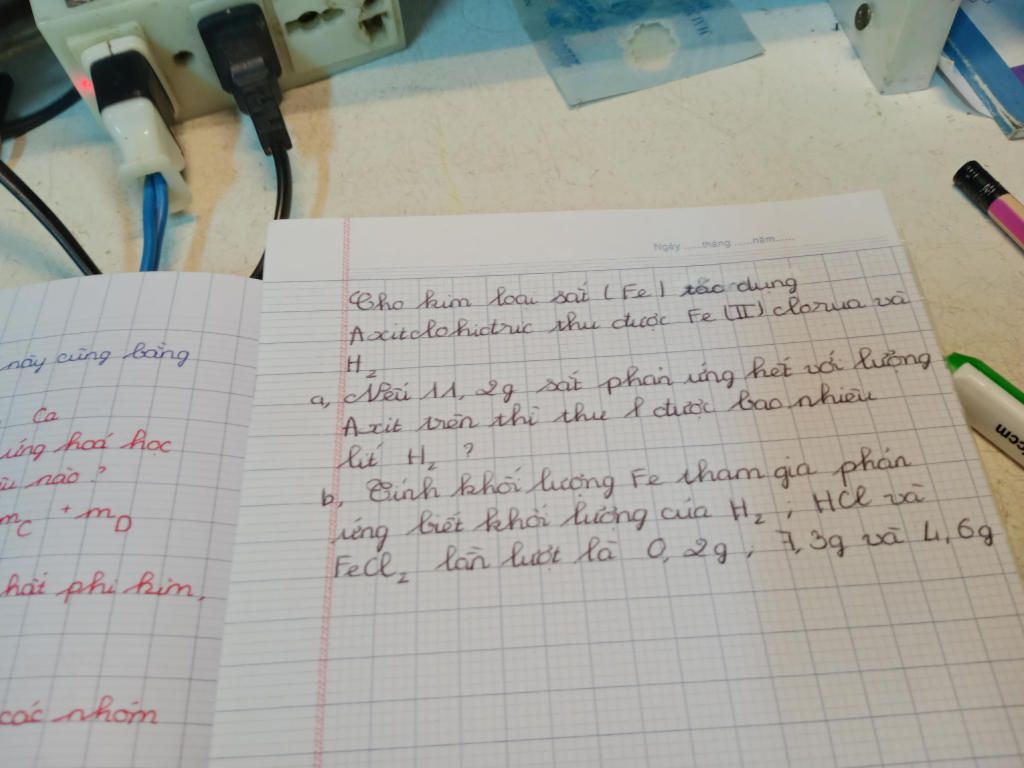 này cũng bằng
Ca
ứng hoá học
nào?
mC + mD
hất phi kim,
các nhóm
Ngày ......tháng ......năm......
Cho kim loại sắt (Fe) tác dụng
Axitclohiđric thu được Fe (II) clorua và
H2
a, Nếu 11,2g sắt phản ứng hết với lượng
Axit trên thì thu được bao nhiêu
lít H2?
b, Tính khối lượng Fe tham gia phản
ứng biết khối lượng của H2; HCl và
FeCl2 lần lượt là 0,2g; 7,3g và 4,6g